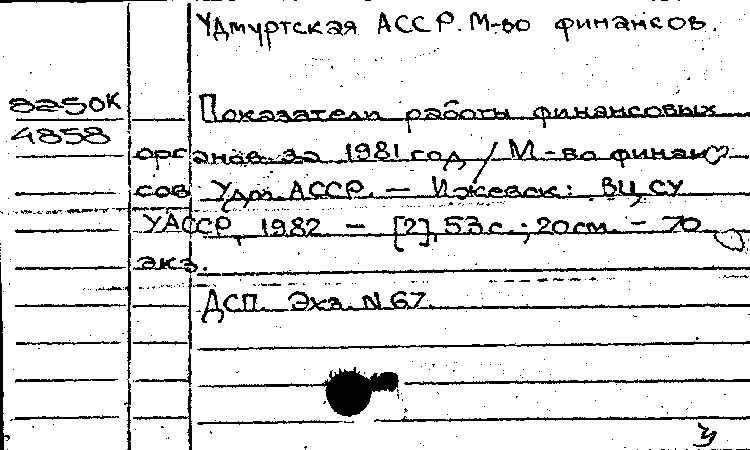 Удмуртская АССР. М-во финансов.
8250К
4858
Показатели работы финансовых
органов за 1981 год / М-во финан
сов Удм. АССР. — Ижевск: ВЦ СУ
УАССР, 1982. — [2], 53 с.; 20 см. — 70
экз.
ДСП. Экз. N 67.